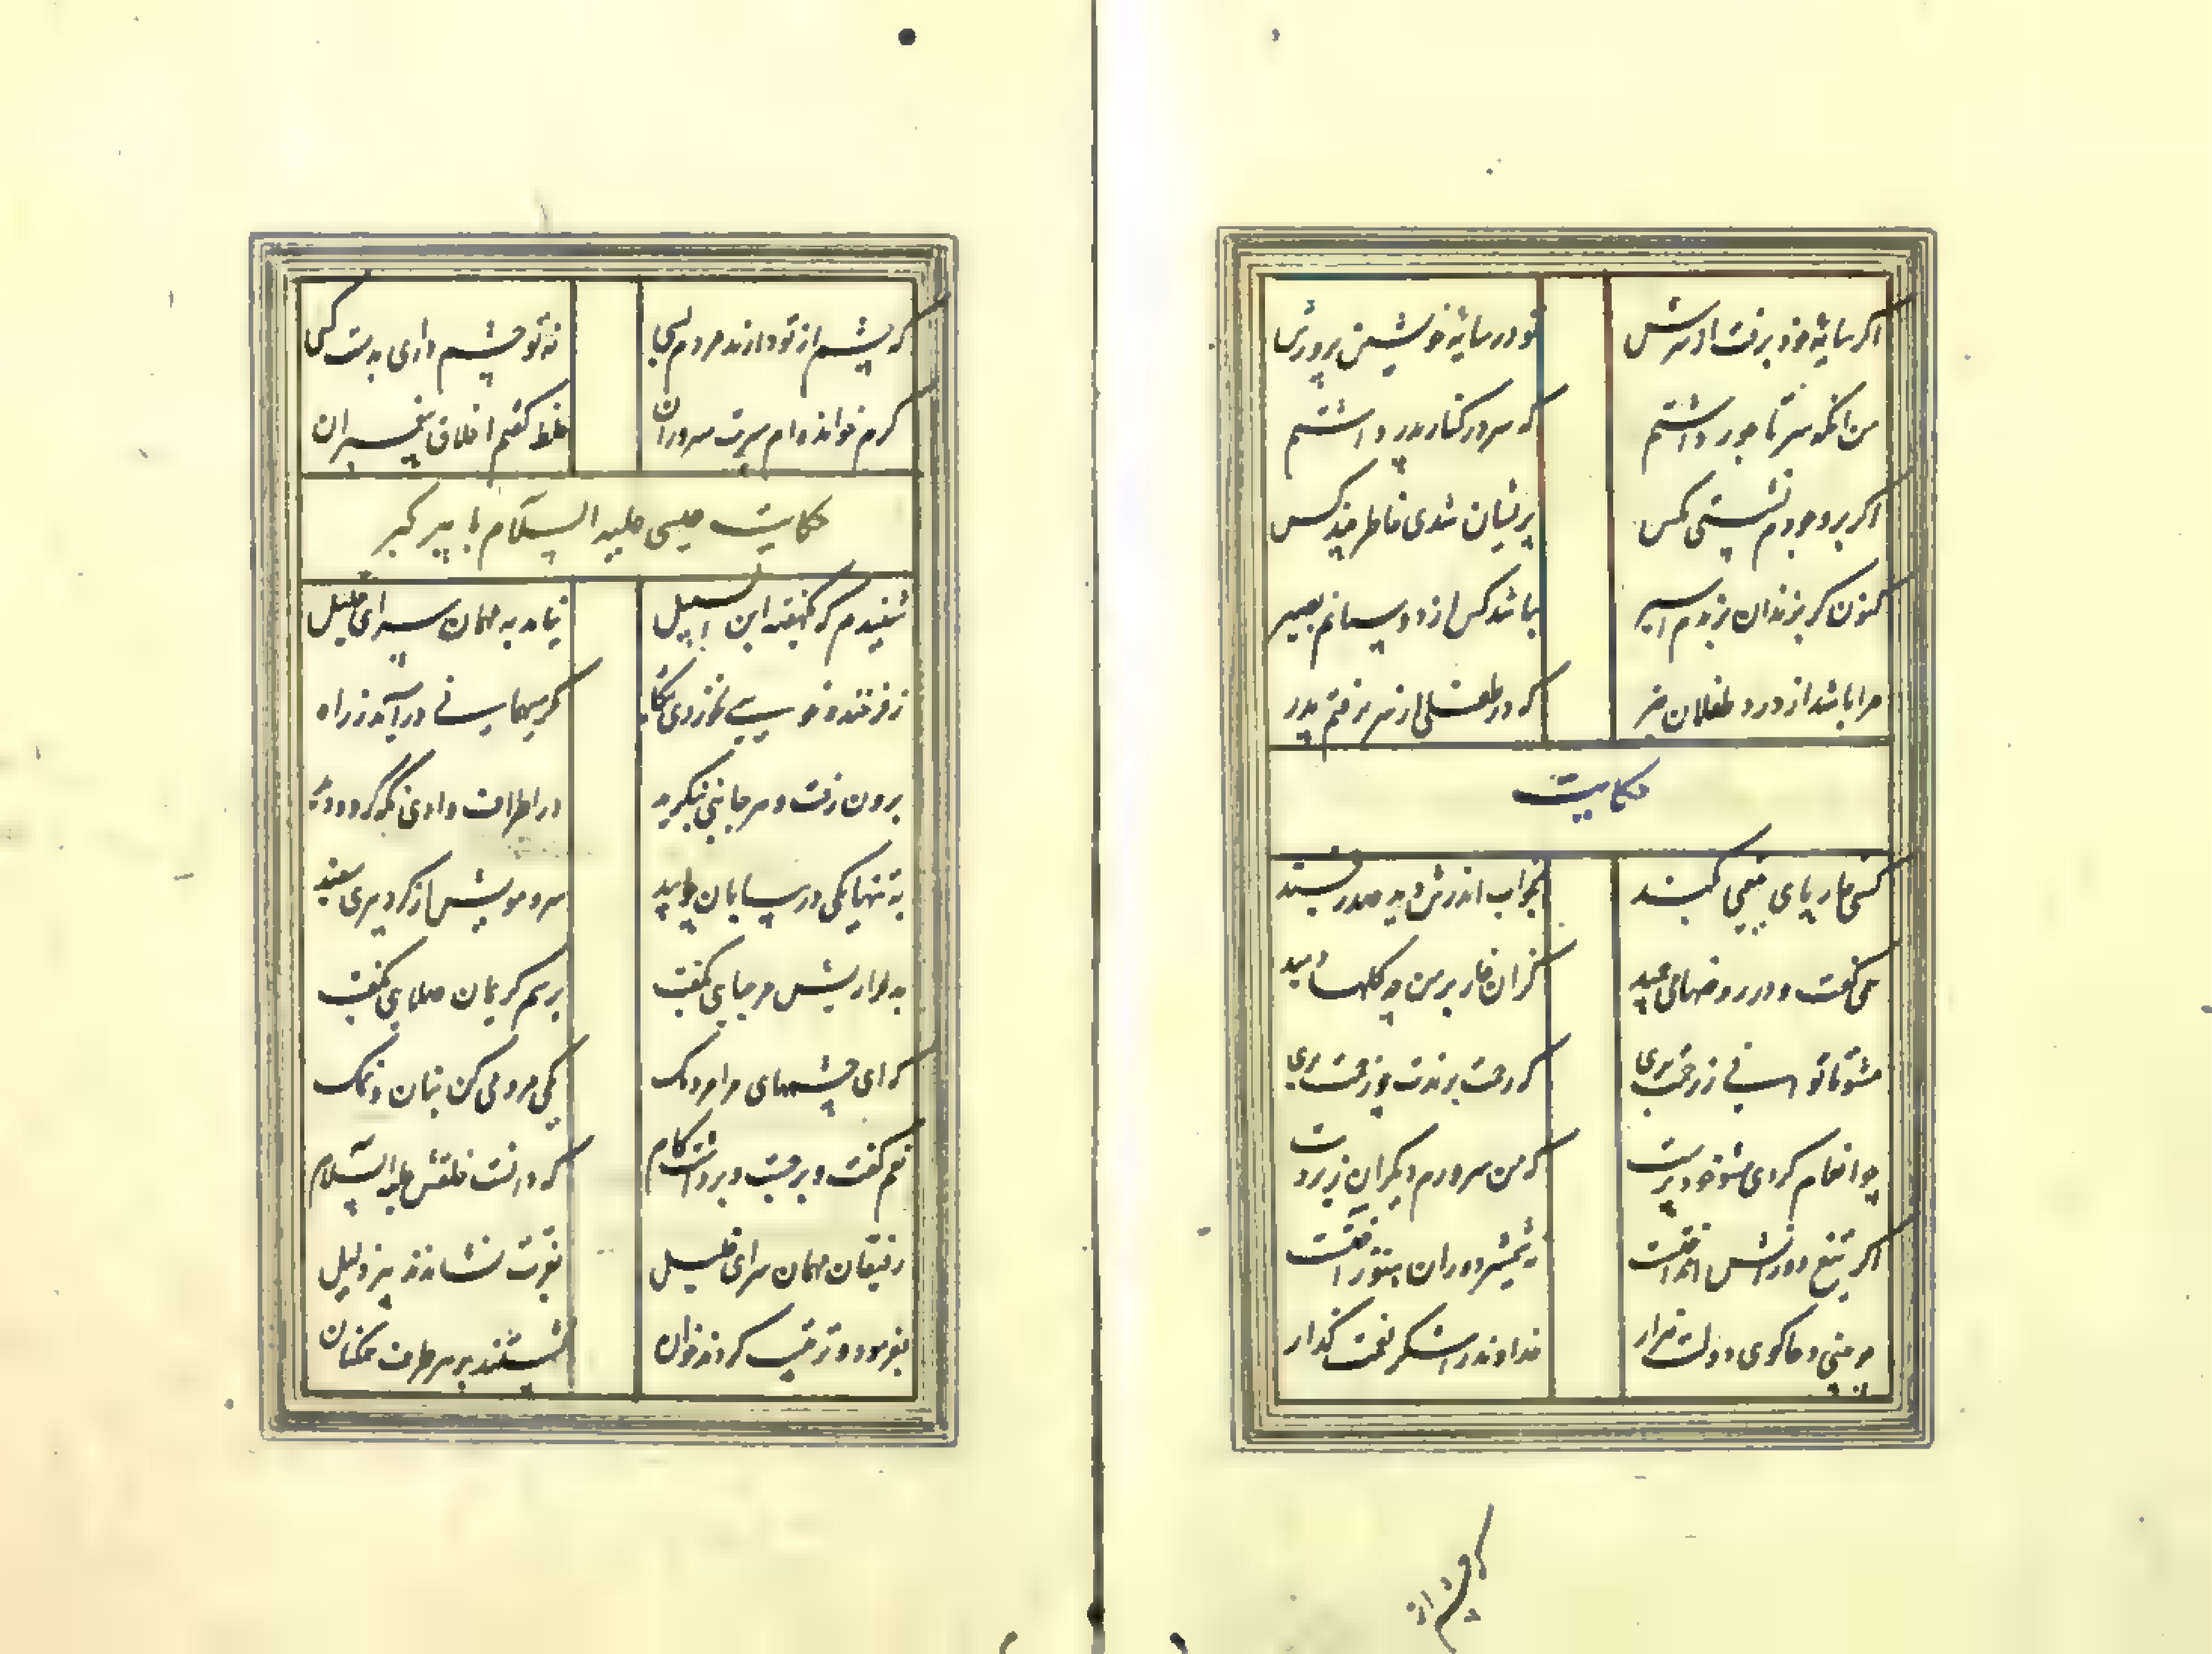 اگر سایهٔ خود برفت از سرش
تو در سایهٔ خویشتن پرورش
من آنگه سر تاجور داشتم
که سر در کنار پدر داشتم
اگر بر وجودم نشستی مگس
پریشان شدی خاطر چند کس
کنون گر بزندان برندم اسیر
نباشد کس از دوستانم نصیر
مرا باشد از درد طفلان خبر
که در طفلی از سر برفتم پدر
حکایت
کسی خار پای یتیمی بکند
بخواب اندرش دید صدر خجند
همی گفت و در روضها می چمید
کزان خار بر من چه گلها دمید
مشو تا توانی ز رحمت بری
که رحمت برندت چو رحمت بری
چو انعام کردی مشو خودپرست
که من سرورم دیگران زیردست
اگر تیغ دورانش انداختست
نه شمشیر دوران هنوز آختست
چو بینی دعاگوی دولت هزار
خداوند را شکر نعمت گذار
که چشم از
که چشم از تو دارند مردم بسی
نه تو چشم داری بدست کسی
کرم خوانده ام سیرت سروران
غلط گفتم اخلاق پیغمبران
حکایت عیسی علیه السلام با پیر گبر
شنیدم که یکهفته ابن السبیل
نیامد به مهمان سرای خلیل
ز فرخنده خویی نخوردی پگاه
مگر بینوایی درآید ز راه
برون رفت و هر جانبی بنگرید
در اطراف وادی نگه کرد و دید
به تنها یکی در بیابان چو بید
سر و مویش از گرد پیری سفید
به دلداریش مرحبایی بگفت
برسم کریمان صلایی بگفت
که ای چشمهای مرا مردمک
یکی مردمی کن بنان و نمک
نعم گفت و برجست و برداشت گام
که دانست خلقش علیه السلام
رفیقان مهمان سرای خلیل
بعزت نشاندند پیر ذلیل
بفرمود و ترتیب کردند خوان
نشستند بر هر طرف همگنان